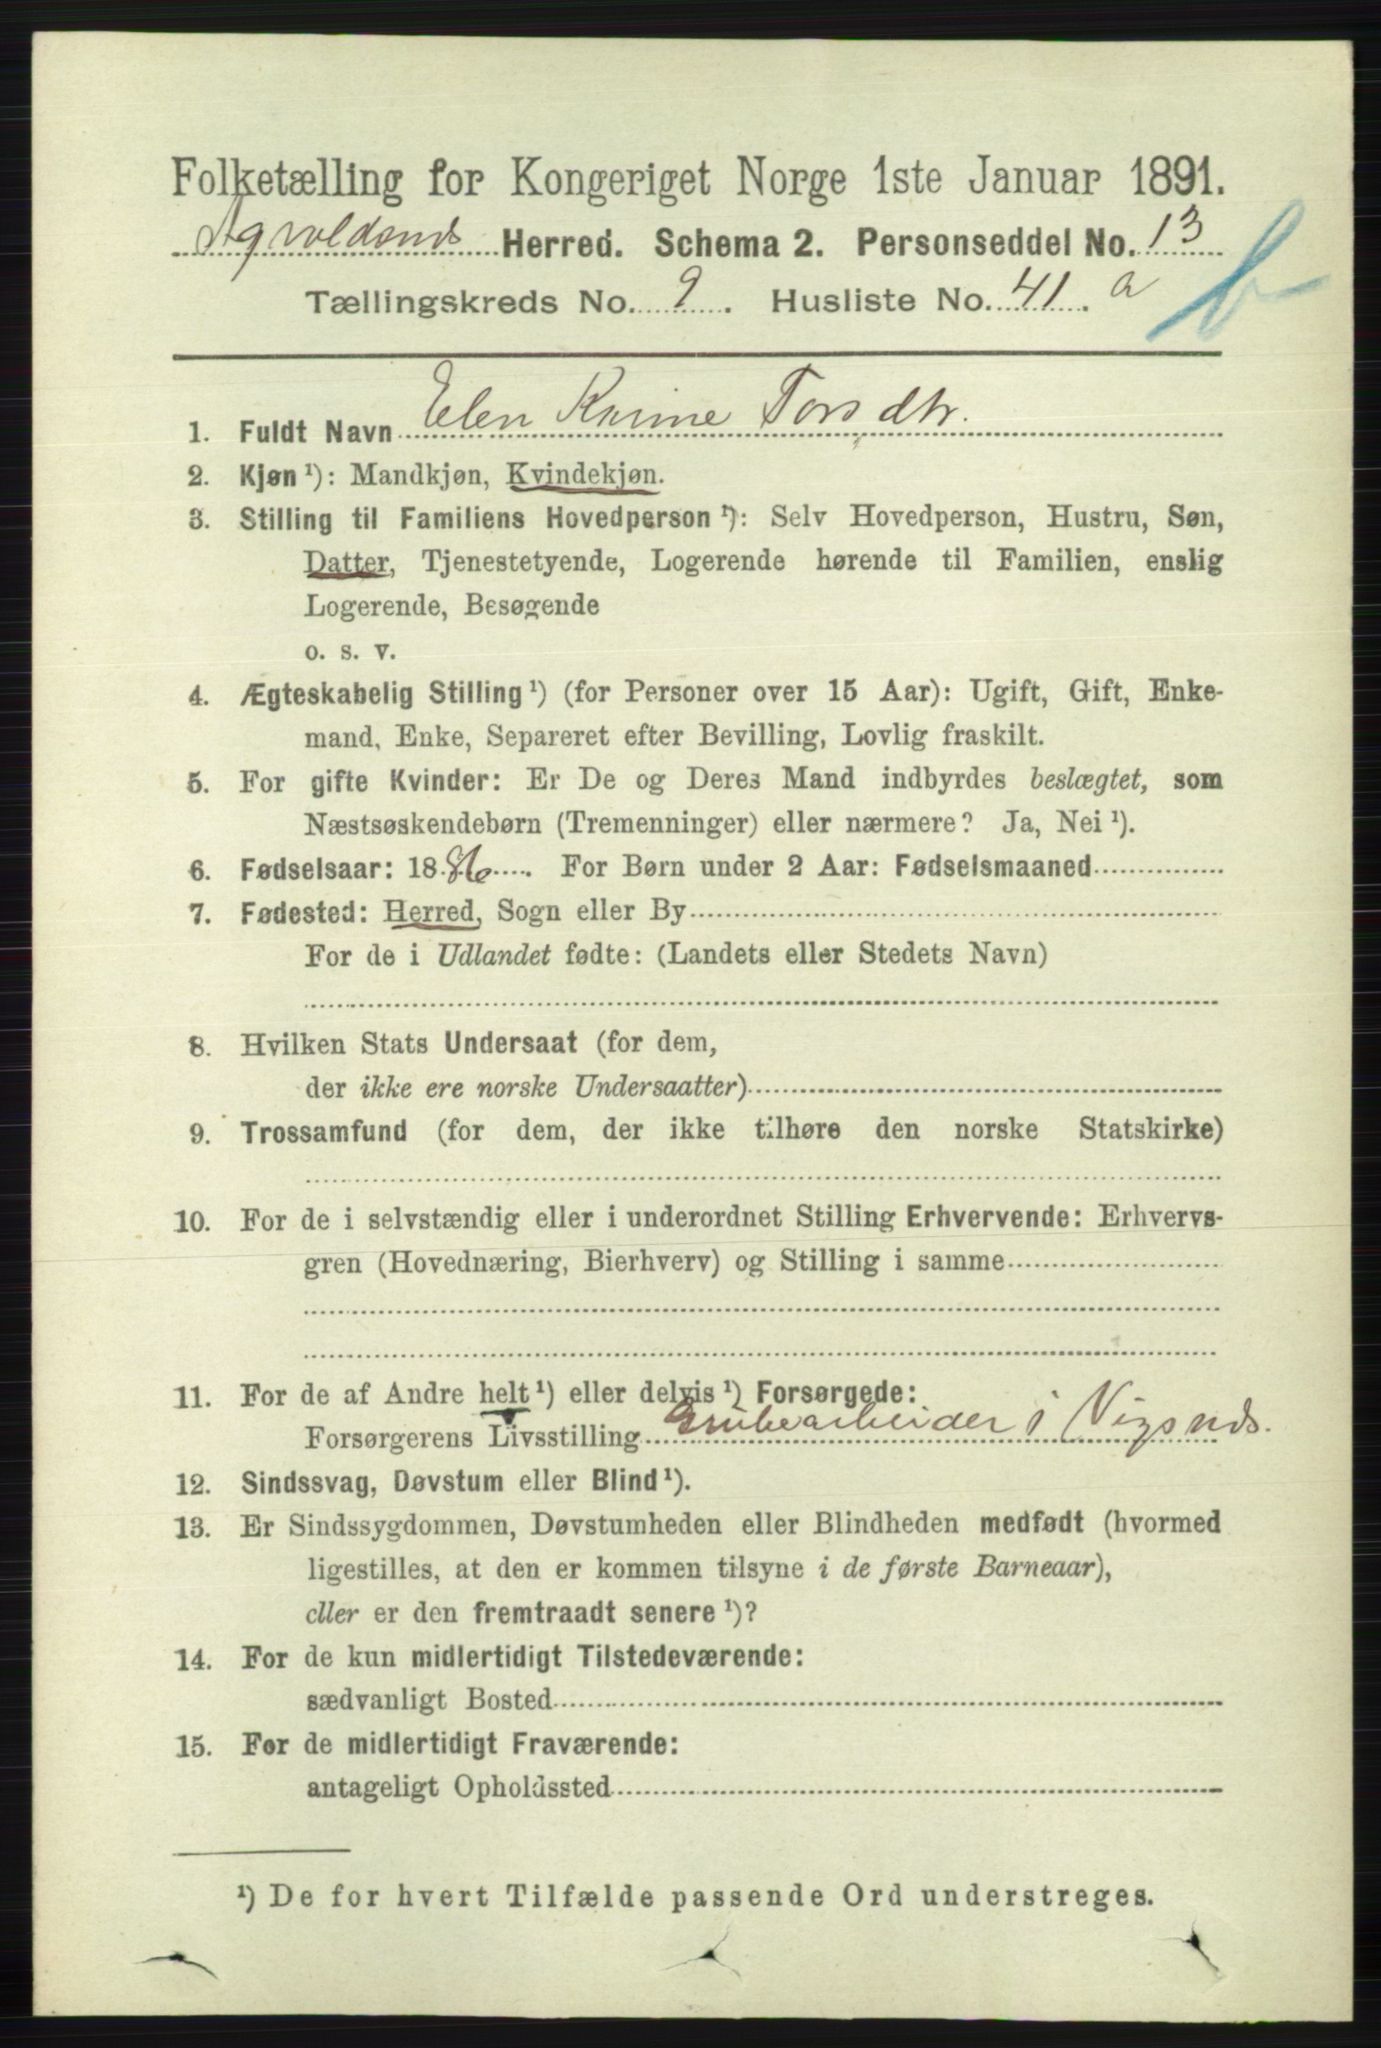 Folketælling for Kongeriget Norge 1ste Januar 1891.
Herred. Schema 2. Personseddel No. 13
Tællingskreds No. 9. Husliste No. 41. a b
1. Fuldt Navn Elen Karine Torsdtr.
2. Kjøn ¹): Mandkjøn, Kvindekjøn.
3. Stilling til Familiens Hovedperson ¹): Selv Hovedperson, Hustru, Søn,
Datter, Tjenestetyende, Logerende hørende til Familien, enslig
Logerende, Besøgende
o. s. v.
4. Ægteskabelig Stilling ¹) (for Personer over 15 Aar): Ugift, Gift, Enke-
mand, Enke, Separeret efter Bevilling, Lovlig fraskilt.
5. For gifte Kvinder: Er De og Deres Mand indbyrdes beslægtet, som
Næstsøskendebørn (Tremenninger) eller nærmere? Ja, Nei ¹).
6. Fødselsaar: 1886. For Børn under 2 Aar: Fødselsmaaned
7. Fødested: Herred, Sogn eller By
For de i Udlandet fødte: (Landets eller Stedets Navn)
8. Hvilken Stats Undersaat (for dem,
der ikke ere norske Undersaatter)
9. Trossamfund (for dem, der ikke tilhøre den norske Statskirke)
10. For de i selvstændig eller i underordnet Stilling Erhvervende: Erhvervs-
gren (Hovednæring, Bierhverv) og Stilling i samme
11. For de af Andre helt ¹) eller delvis ¹) Forsørgede:
Forsørgerens Livsstilling Grubearbeider i Vigsnds.
12. Sindssvag, Døvstum eller Blind ¹).
13. Er Sindssygdommen, Døvstumheden eller Blindheden medfødt (hvormed
ligestilles, at den er kommen tilsyne i de første Barneaar),
eller er den fremtraadt senere ¹)?
14. For de kun midlertidigt Tilstedeværende:
sædvanligt Bosted
15. For de midlertidigt Fraværende:
antageligt Opholdssted
¹) De for hvert Tilfælde passende Ord understreges.